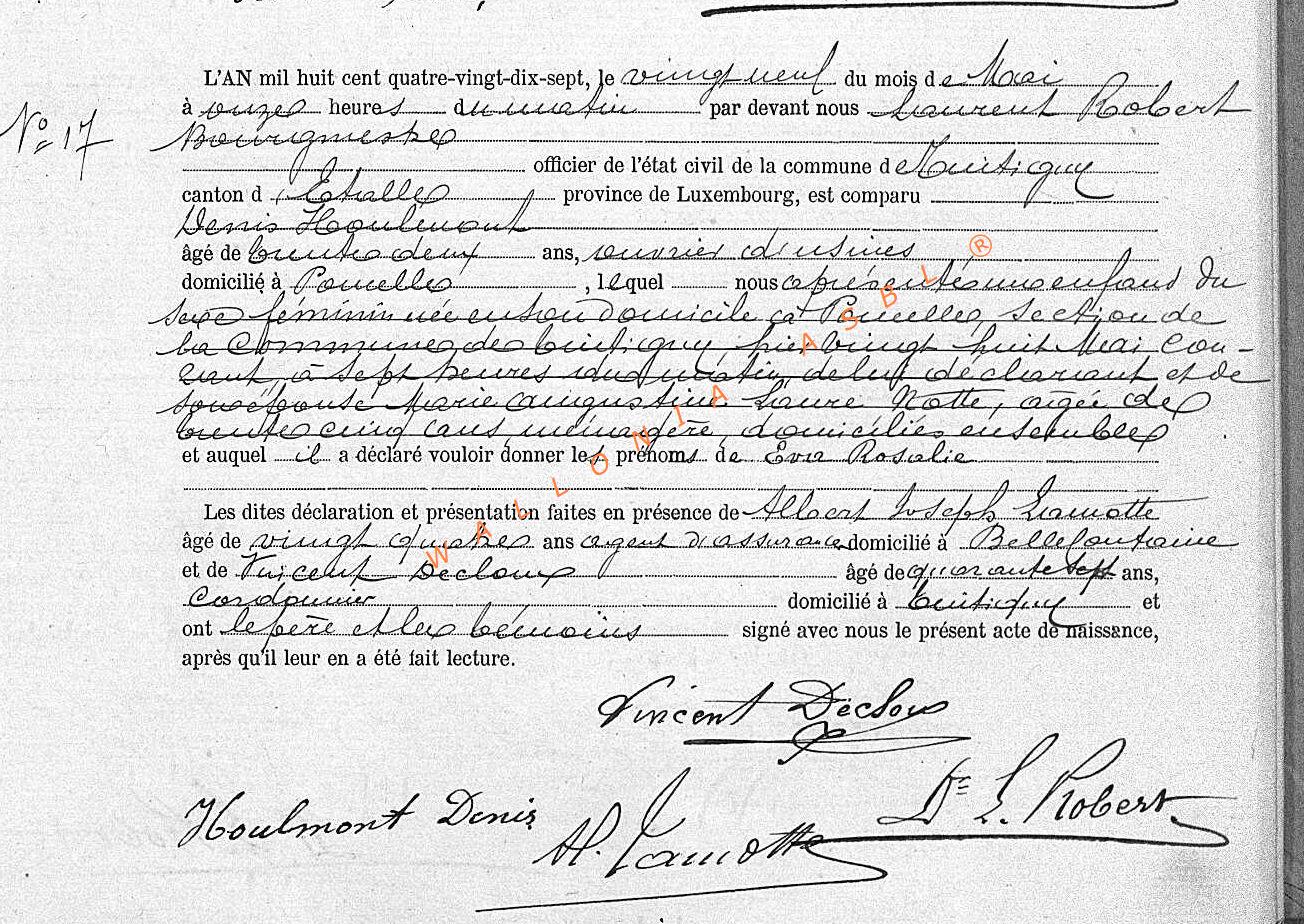 L'AN mil huit cent quatre-vingt-dix-sept, le vingt neuf du mois de Mai
No 17
à onze heures du matin par devant nous Laurent Robert
Bourgmestre
officier de l'état civil de la commune de Tintigny
canton d'Etalle province de Luxembourg, est comparu
Denis Houlmont
âgé de trente deux ans, ouvrier d'usines
domicilié à Poncelle, lequel nous a présenté une enfant du
sexe féminin née en son domicile à Poncelle, section de
la Commune de Tintigny, hier vingt huit Mai, cou-
rant, à sept heures du matin, de lui déclarant et de
son épouse Marie Augustine Laure Notte, âgée de
trente cinq ans, ménagère, domiciliés ensemble
et auquel il a déclaré vouloir donner les prénoms de Eva Rosalie
Les dites déclaration et présentation faites en présence de Albert Joseph Lamotte
âgé de vingt quatre ans agent d'assurance domicilié à Bellefontaine
et de Vincent Décloux âgé de quarante sept ans,
Cordonnier domicilié à Tintigny et
ont le père et les témoins signé avec nous le présent acte de naissance,
après qu'il leur en a été fait lecture.
Vincent Décloux
Houlmont Denis
Al. Lamotte
Dr L. Robert
WALLONIA ASBL ®